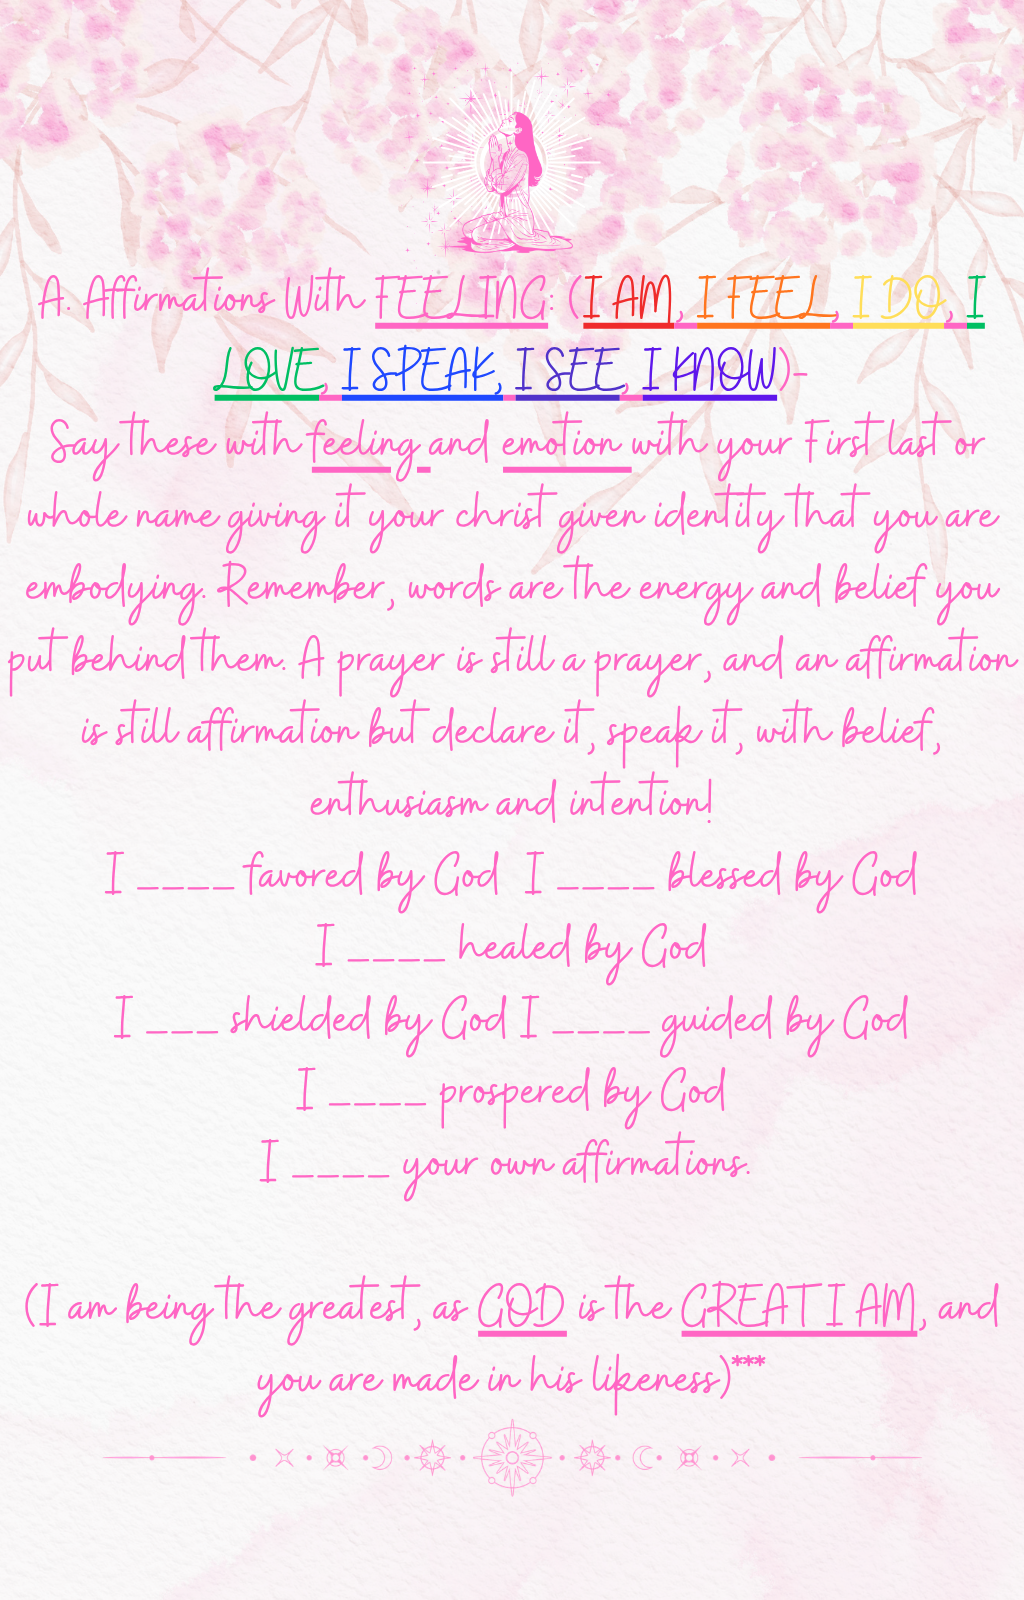 A. Affirmations With FEELING: (I AM, I FEEL, I DO, I
LOVE, I SPEAK, I SEE, I KNOW)-
Say these with feeling and emotion with your First last or
whole name giving it your christ given identity that you are
embodying. Remember, words are the energy and belief you
put behind them. A prayer is still a prayer, and an affirmation
is still affirmation but declare it, speak it, with belief,
enthusiasm and intention!
I ____ favored by God I ____ blessed by God
I ____ healed by God
I ___ shielded by God I ____ guided by God
I ____ prospered by God
I ____ your own affirmations.
(I am being the greatest, as GOD is the GREAT I AM, and
you are made in his likeness)***